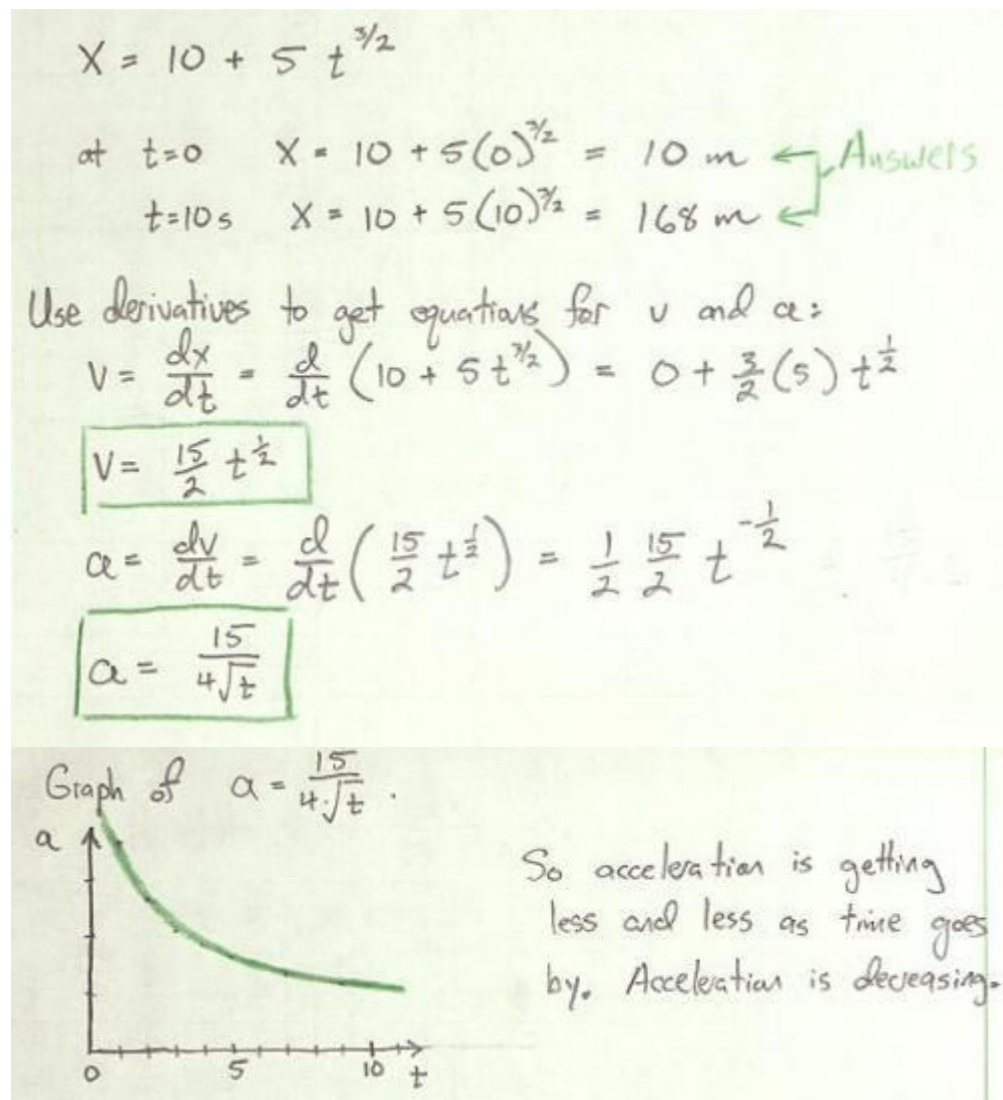 X = 10 + 5 t^3/2
at t=0 X = 10 + 5(0)^3/2 = 10 m ← Answers
t=10 s X = 10 + 5(10)^3/2 = 168 m ←
Use derivatives to get equations for v and a:
V = dx/dt = d/dt (10 + 5 t^3/2) = 0 + 3/2 (5) t^1/2
V = 15/2 t^1/2
a = dv/dt = d/dt (15/2 t^1/2) = 1/2 15/2 t^-1/2
a = 15/4√t
Graph of a = 15/4√t .
a
So acceleration is getting
less and less as time goes
by. Acceleration is decreasing.
0 5 10 t